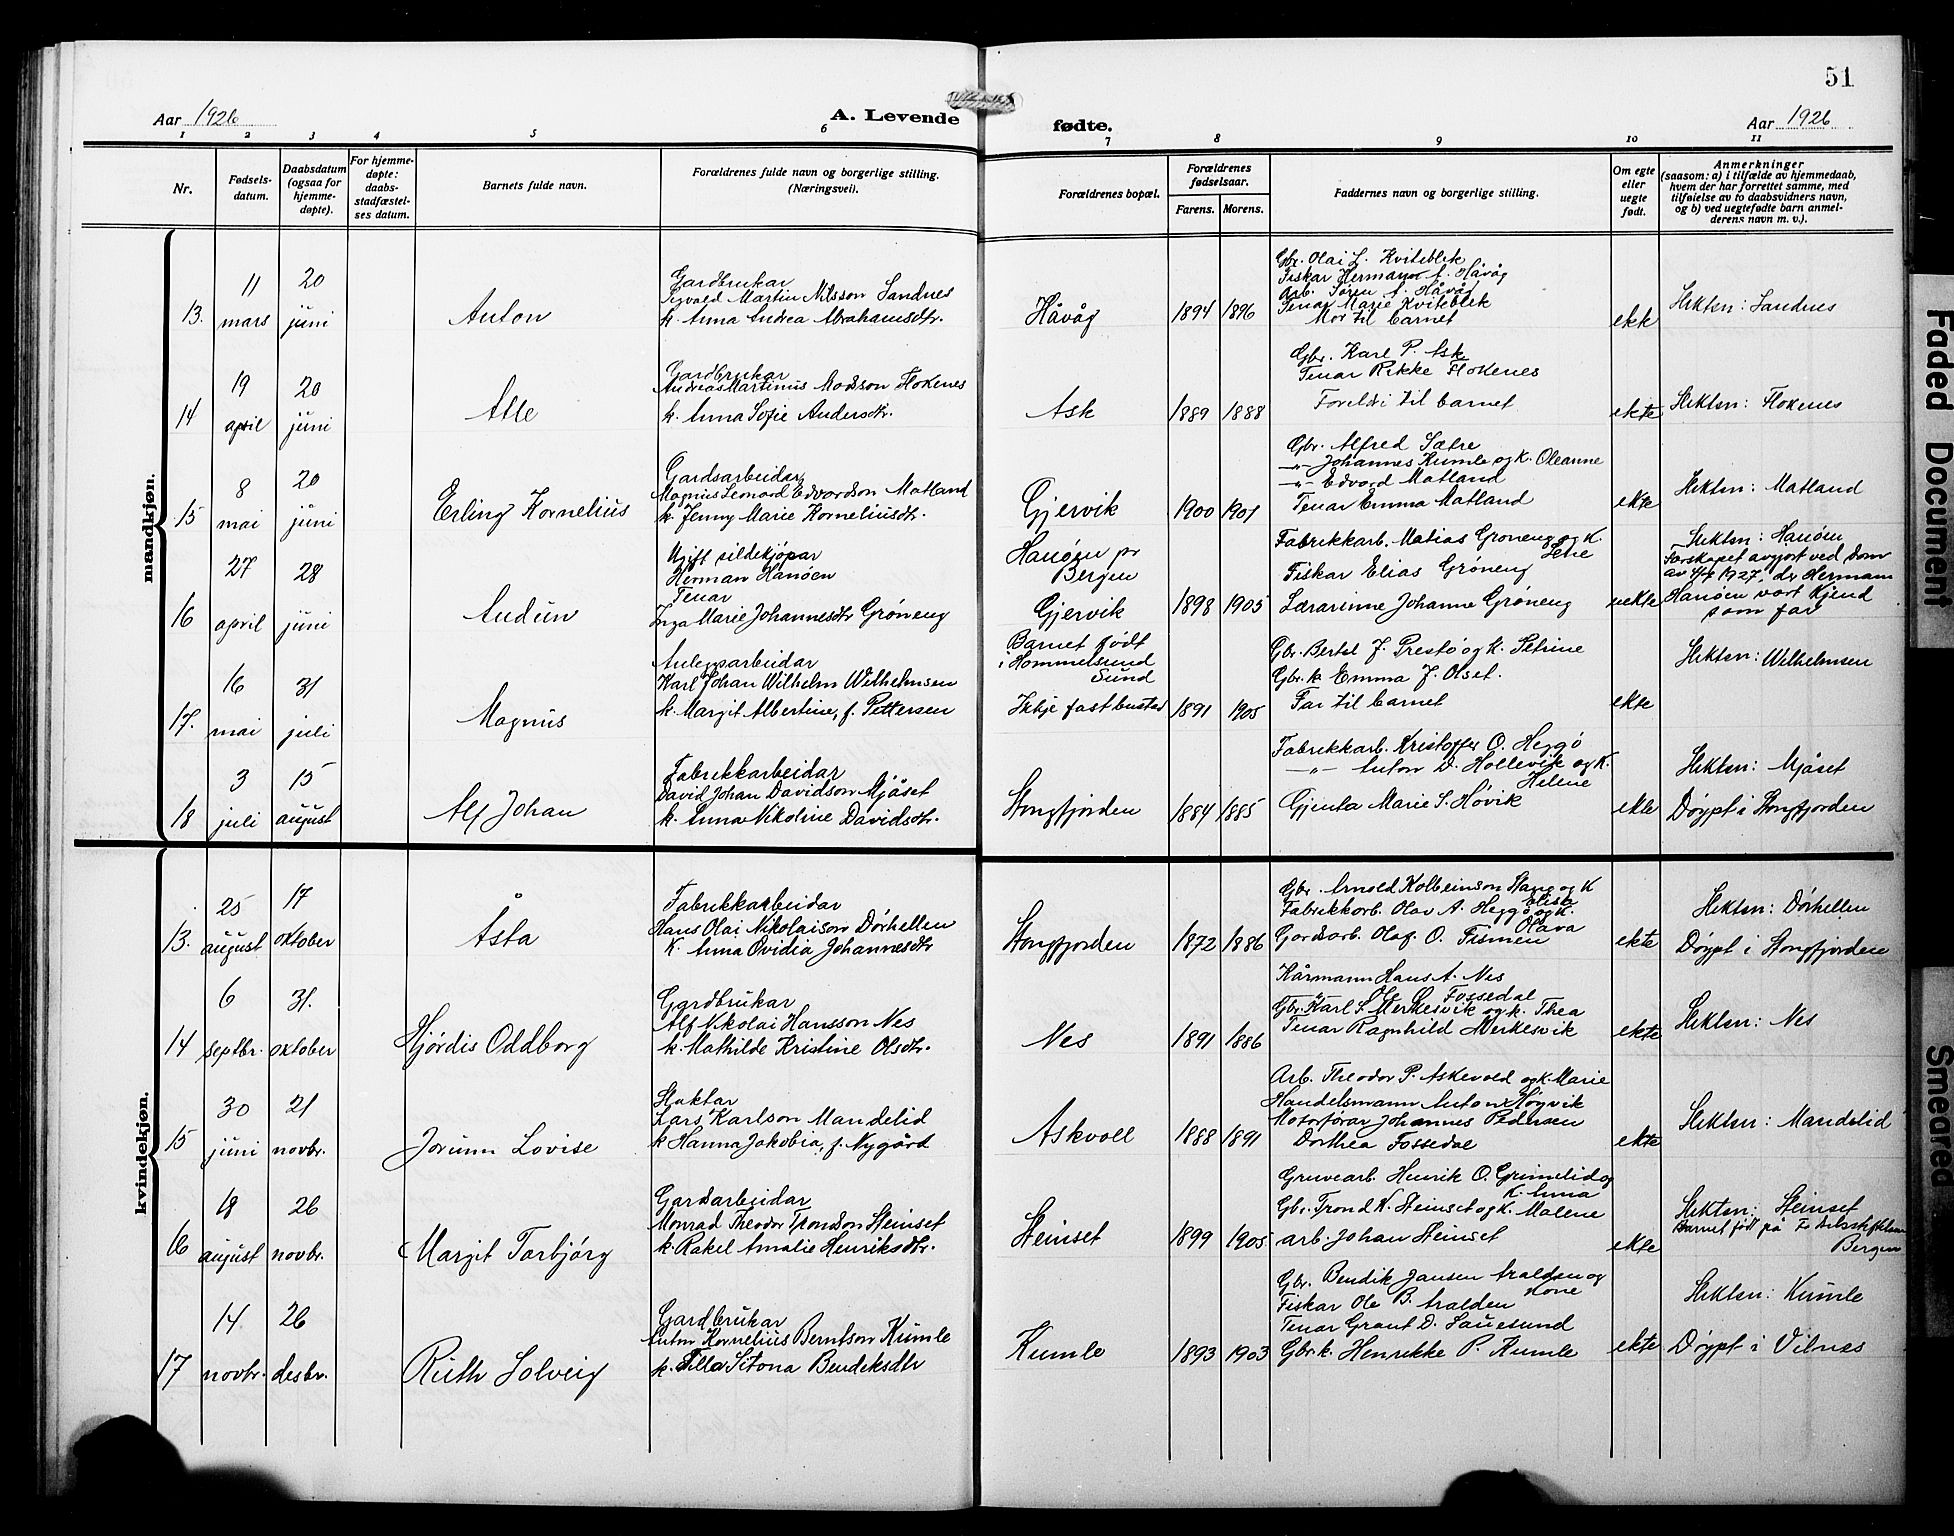 51
Aar 1926
A. Levende
fødte.
Aar 1926
1 2 3 4 5 6 7 8 9 10 11
Nr.
Fødsels-
datum.
Daabsdatum
(ogsaa for
hjemme-
døpte).
For hjemme-
døpte:
daabs-
stadfæstel-
ses datum.
Barnets fulde navn.
Forældrenes fulde navn og borgerlige stilling.
(Næringsvei).
Forældrenes bopæl.
Forældrenes
fødselsaar.
Farens. Morens.
Faddernes navn og borgerlige stilling.
Om egte
eller
uegte
født.
Anmerkninger
(saasom: a) i tilfælde av hjemmedaab,
hvem der har forrettet samme, med
tilføielse av to daabsvidners navn,
og b) ved uegtefødte barn anmel-
derens navn m. v.).
mandkjøn.
13.
11
mars
20
juni
Anton
Gardbrukar
Sigvald Martin Nilsson Sandnes
k. Anna Andrea Abrahamsdtr.
Håvåg
1894 1896
Gbr. Olai L. Kviteblek
Fiskar Herman A. Håvåg
Arb. Søren A. Håvåg
Tenar Marie Kviteblek
Mor til barnet
ekte
Slekten: Sandnes
14
19
april
20
juni
Atle
Gardbrukar
Andreas Martinus Madsson Flokenes
k. Anna Sofie Andersdtr.
Ask
1889 1888
Gbr. Karl P. Ask
Tenar Rikke Flokenes
Foreldri til barnet
ekte
Slekten: Flokenes
15
8
mai
20
juni
Erling Kornelius
Gardsarbeidar
Magnus Leonard Edvardson Matland
k. Jenny Marie Korneliusdtr.
Gjervik
1900 1901
Gbr. Alfred Sætre
—"— Johannes Kumle og k. Oleanne
—"— Edvard Matland
Tenar Emma Matland
ekte
Slekten: Matland
16
27
april
28
juni
Audun
Ugift sildekjøpar
Herman Hanøen
Tenar
Inga Marie Johannesdtr Grøneng
Hanøen pr
Bergen
Gjervik
1898 1905
Fabrikkarb. Matias Grøneng og k.
Fiskar Elias Grøneng
Lærarinne Johanne Grøneng
uekte
Slekten: Hanøen
Farskapet avgjort ved Dom
1927, der Herman
Hanøen vart kjend
som far
17.
16
mai
31
juli
Magnus
Anleggsarbeidar
Karl Johan Wilhelm Wilhelmsen
k. Margit Albertine, f. Pettersen
Barnet født
i Hommelsund
Sund
Ikkje fast bustad
1891 1905
Gbr. Bertel J. Prestø og k. Petrine
Gbr. k Emma J. Olset.
Far til barnet
ekte
Slekten: Wilhelmsen
18
3
juli
15
august
Alf Johan
Fabrikkarbeidar
David Johan Davidson Mjåset
k. Anna Nikoline Davidsdtr.
Stongfjorden
1884 1885
Fabrikkarb. Kristoffer O. Heggø
—"— Anton D. Hollevik og k.
Helene
Gjenta Marie S. Høvik
ekte
Slekten: Mjåset
Døypt i Stongfjorden
kvindekjøn.
13.
25
august
17
oktober
Åsta
Fabrikkarbeidar
Hans Olai Nikolaison Dørhellen
k. Anna Ovidia Johannesdtr
Stongfjorden
1872 1886
Gbr. Arnold Kolbeinson Stang og k
Elise
Fabrikkarb. Olav A. Heggø og k.
Olava
Gardsarb. Olaf O. Tismen
ekte
Slekten: Dørhellen
Døypt i Stongfjorden
14
6
septbr.
31.
oktober
Hjørdis Oddborg
Gardbrukar
Alf Nikolai Hansson Nes
k. Mathilde Kristine Olsdtr.
Nes
1891 1886
Kårmann Hans A. Nes
" Ole O. Fossedal
Gbr. Karl S. Merkesvik og k. Thea
Tenar Ragnhild Merkesvik
ekte
Slekten: Nes
15
30
juni
21
novbr.
Jorunn Lovise
Slaktar
Lars Karlson Mandelid
k Hanna Jakobia, f. Nygård
Askvoll
1888 1891
Arb. Theodor P. Askevold og k. Marie
Handelsmann Anton Høgvik
Motorførar Johannes Pedersen
Dorthea Fossedal
ekte
Slekten: Mandelid
16
18
august
26
novbr.
Margit Torbjørg
Gardsarbeidar
Monrad Theodor Trondson Steinset
k. Rakel Amalie Henriksdtr.
Steinset
1899 1905
Gruvearb. Henrik O. Grimelid og
k. Anna
Gbr. Trond K. Steinset og k. Malene
arb. Johan Steinset
ekte
Slekten: Steinset
Barnet født på
Bergen
17
14
novbr.
26
desbr.
Ruth Solveig
Gardbrukar
Anton Kornelius Berntson Kumle
k. Tilla Sitona Bendeksdtr
Kumle
1893 1903
Gbr. Bendik Jansen Aralden og
kone
Fiskar Ole B. Aralden
Tenar Graut D. Sauesund
Gbr. k. Henrikke P. Kumle
ekte
Slekten: Kumle
Døypt i Vilnes
Faded Document
Smeared